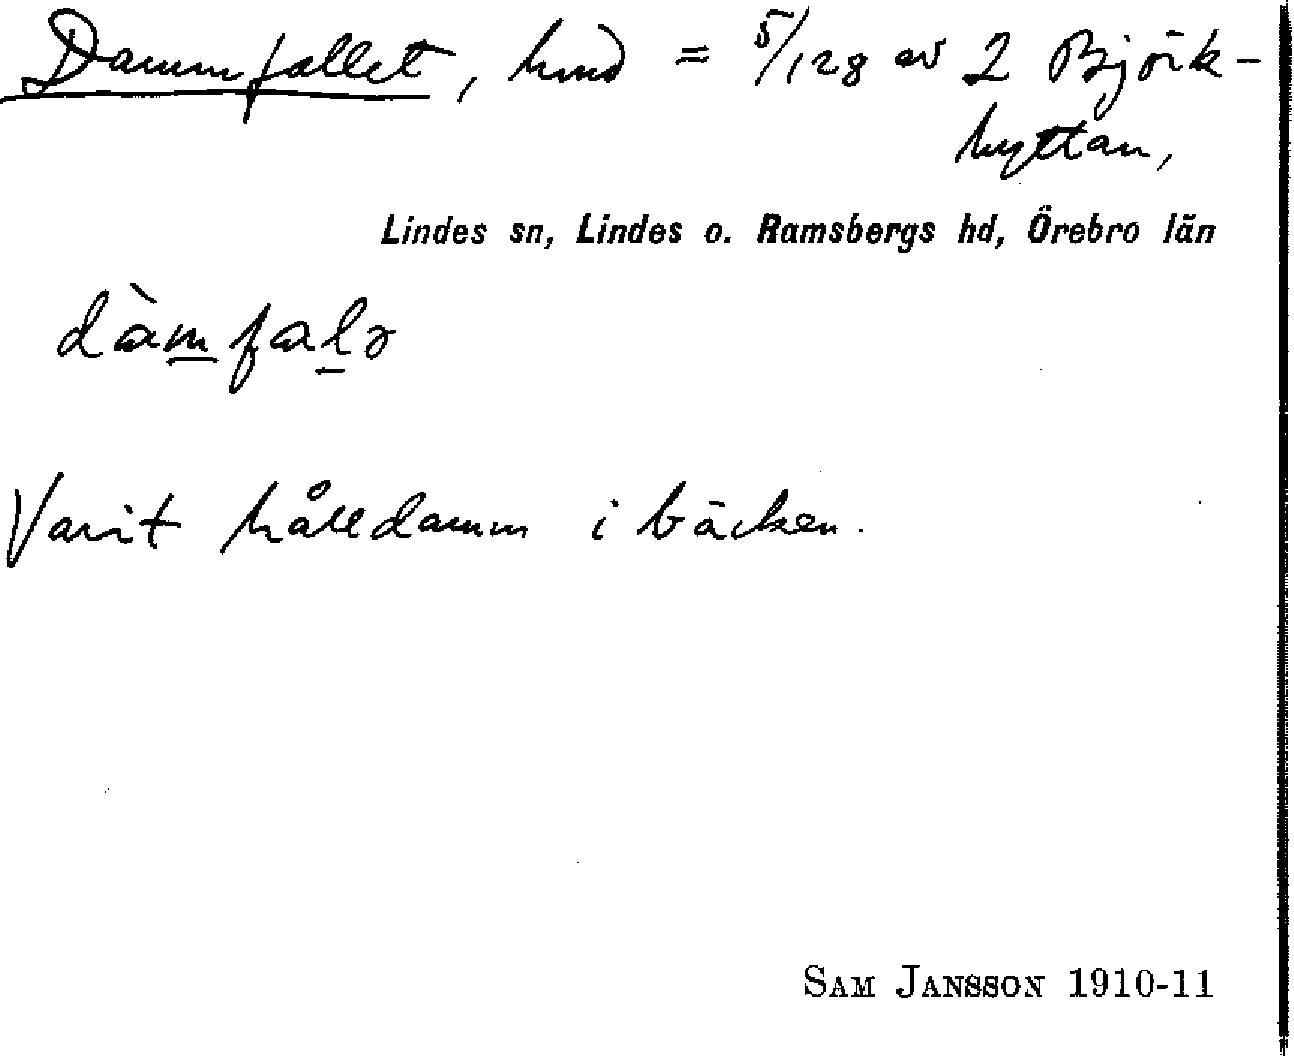 Dammfallet, hmd = 5/128 av 2 Björk-
hyttan,
Lindes sn, Lindes o. Ramsbergs hd, Örebro län
dàmfalə
Varit hålldamm i bäcken.
SAM JANSSON 1910-11